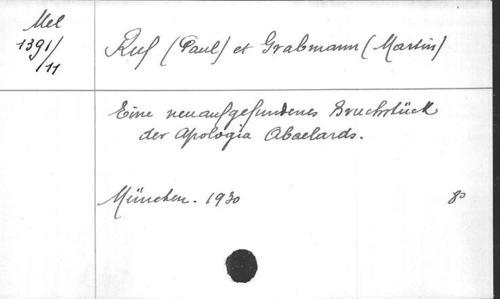 Mel
1391/
/11
Ruf (Paul) et Grabmann (Martin)
Eine neuaufgefundenes Bruchstück
der Apologia Abaelards.
München. 1930
8°